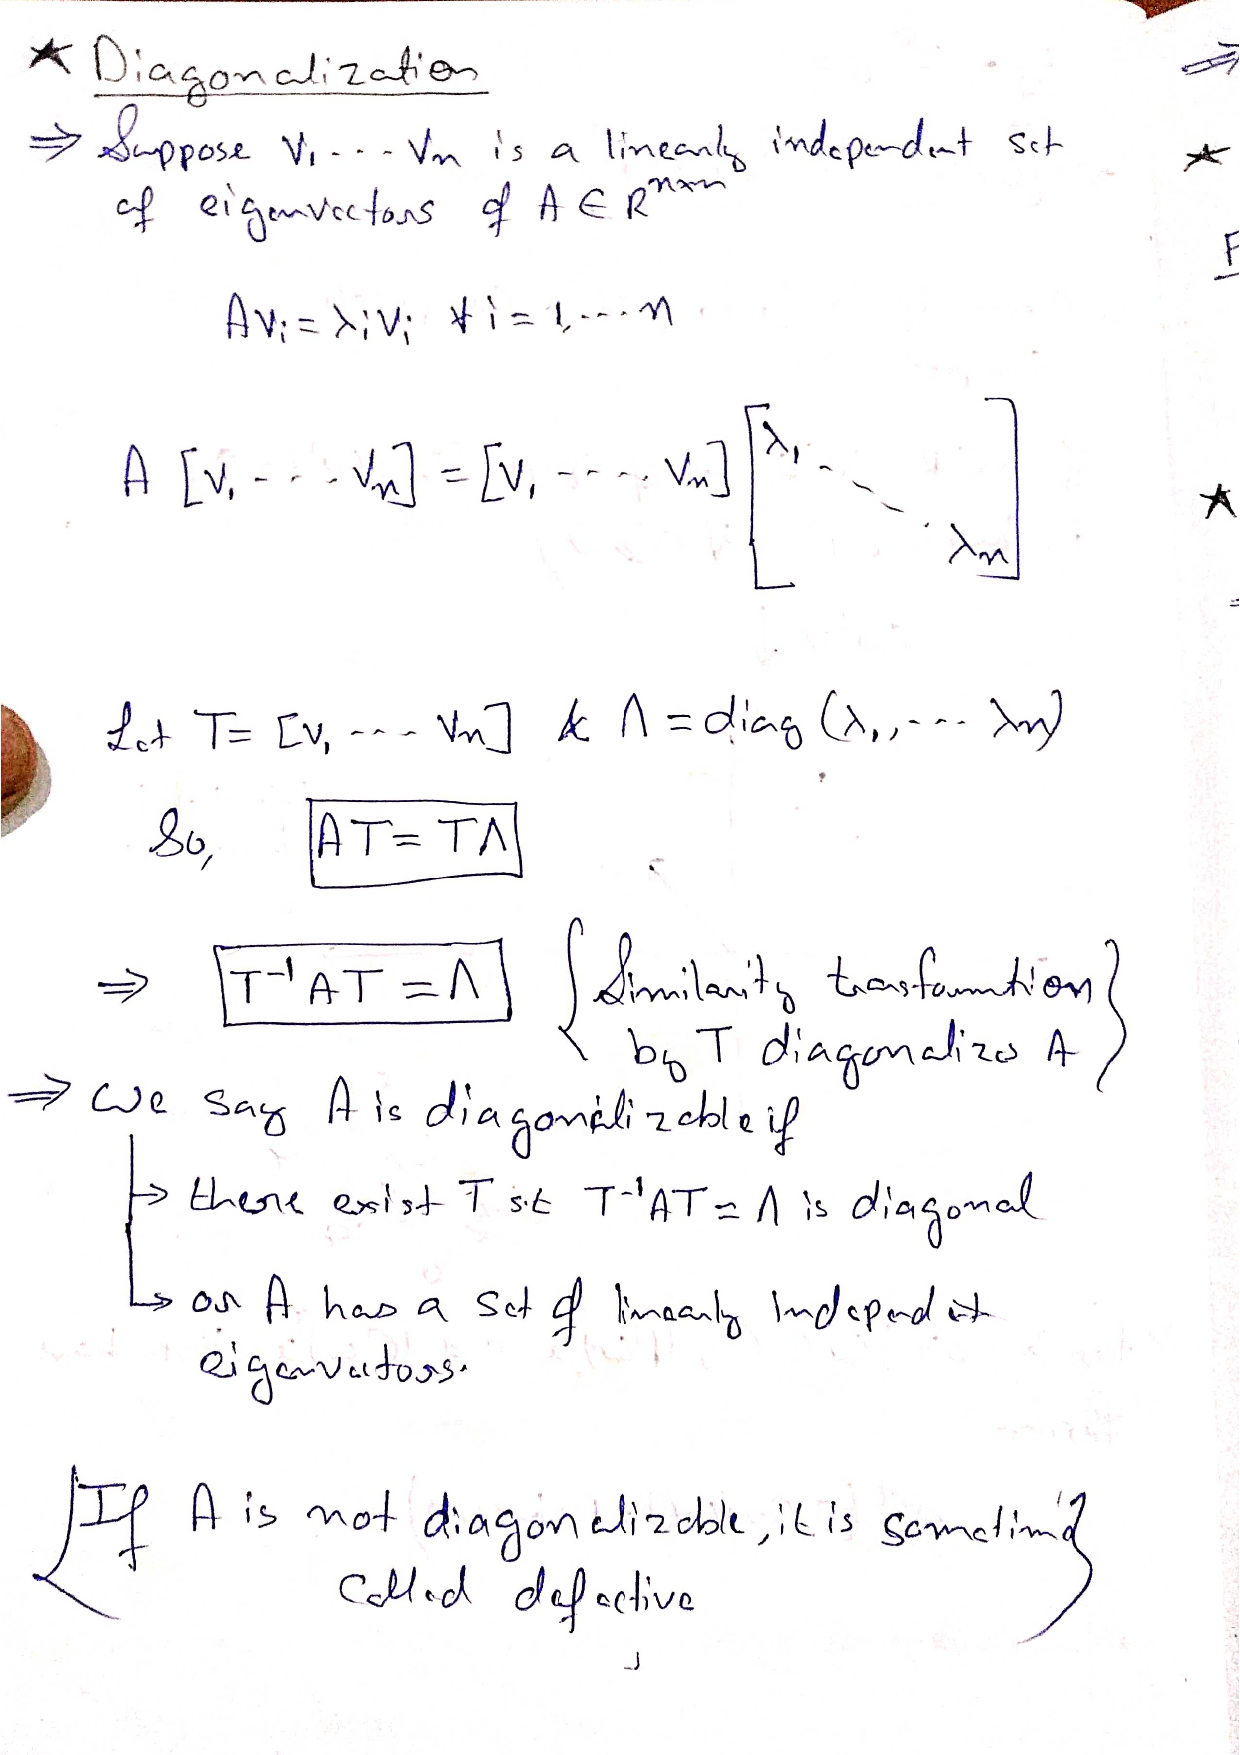 ★ Diagonalization
⇒ Suppose v₁ --- vₙ is a linearly independent set
of eigenvectors of A ∈ Rⁿˣⁿ
Avᵢ = λᵢvᵢ ∀ i = 1, --- n
A [v₁ --- vₙ] = [v₁ ---- vₙ] [λ₁ ⋱ λₙ]
Let T = [v₁ --- vₙ] & Λ = diag (λ₁, --- λₙ)
So, AT = TΛ
⇒ T⁻¹AT = Λ { Similarity transformation
by T diagonalizes A }
⇒ We say A is diagonalizable if
↳ there exist T s.t T⁻¹AT = Λ is diagonal
↳ or A has a set of linearly independent
eigenvectors.
{ If A is not diagonalizable, it is sometimes
called defective }
⇒
★
F
★